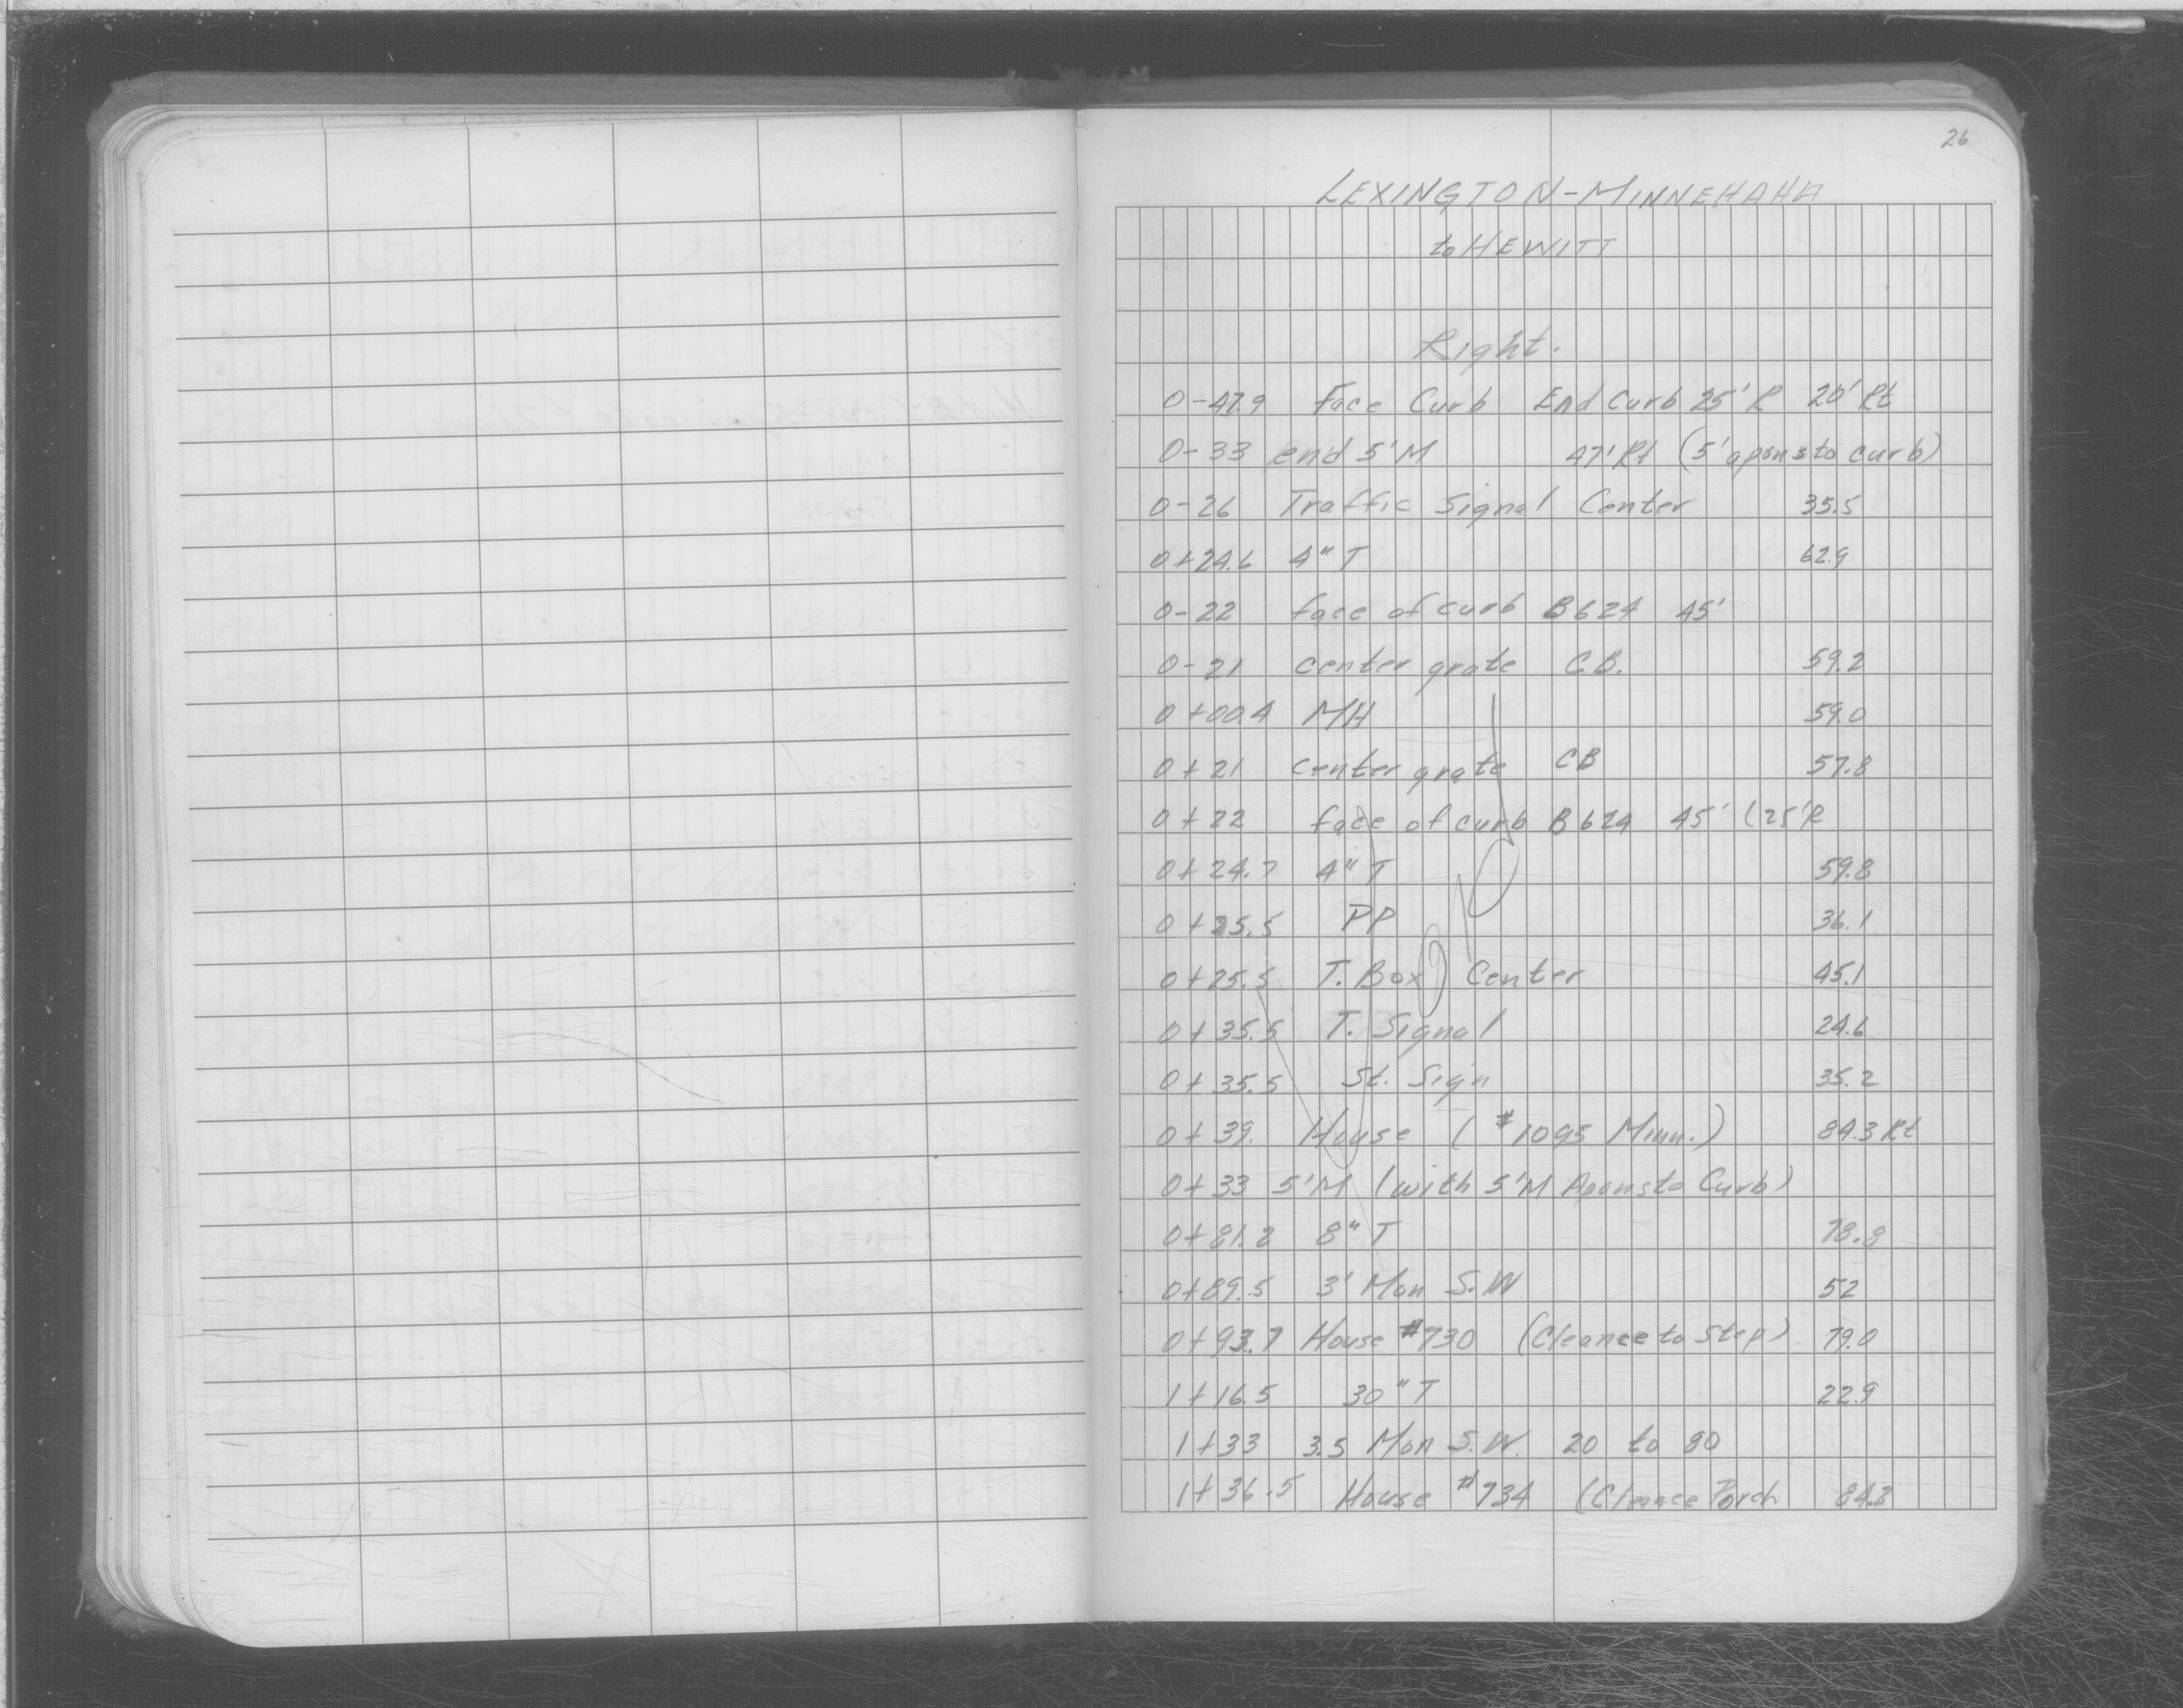 26
LEXINGTON-MINNEHAHA
to HEWITT
Right.
0-47.9 Face Curb End Curb 25' R 20' Rt
0-33 end 5'M 47' Rt (5' apons to curb)
0-26 Traffic Signal Center 35.5
0+24.6 4" T 62.9
0-22 face of curb B624 45'
0-21 center grate C.B. 59.2
0+00.4 MH 59.0
0+21 center grate CB 57.8
0+22 face of curb B624 45' (25'R
0+24.7 4" T 59.8
0+25.5 PP 36.1
0+25.5 T. Box Center 45.1
0+35.5 T. Signal 24.6
0+35.5 St. Sign 35.2
0+39. House (#1095 Minn.) 84.3 Rt
0+33 5'M (with 5'M Aponsto Curb)
0+81.2 8" T 78.8
0+89.5 3' Mon S.W 52
0+93.7 House #730 (Cleance to Step) 79.0
1+16.5 30" T 22.9
1+33 3.5 Mon S.W. 20 to 80
1+36.5 House #734 (Cleance Porch 84.3